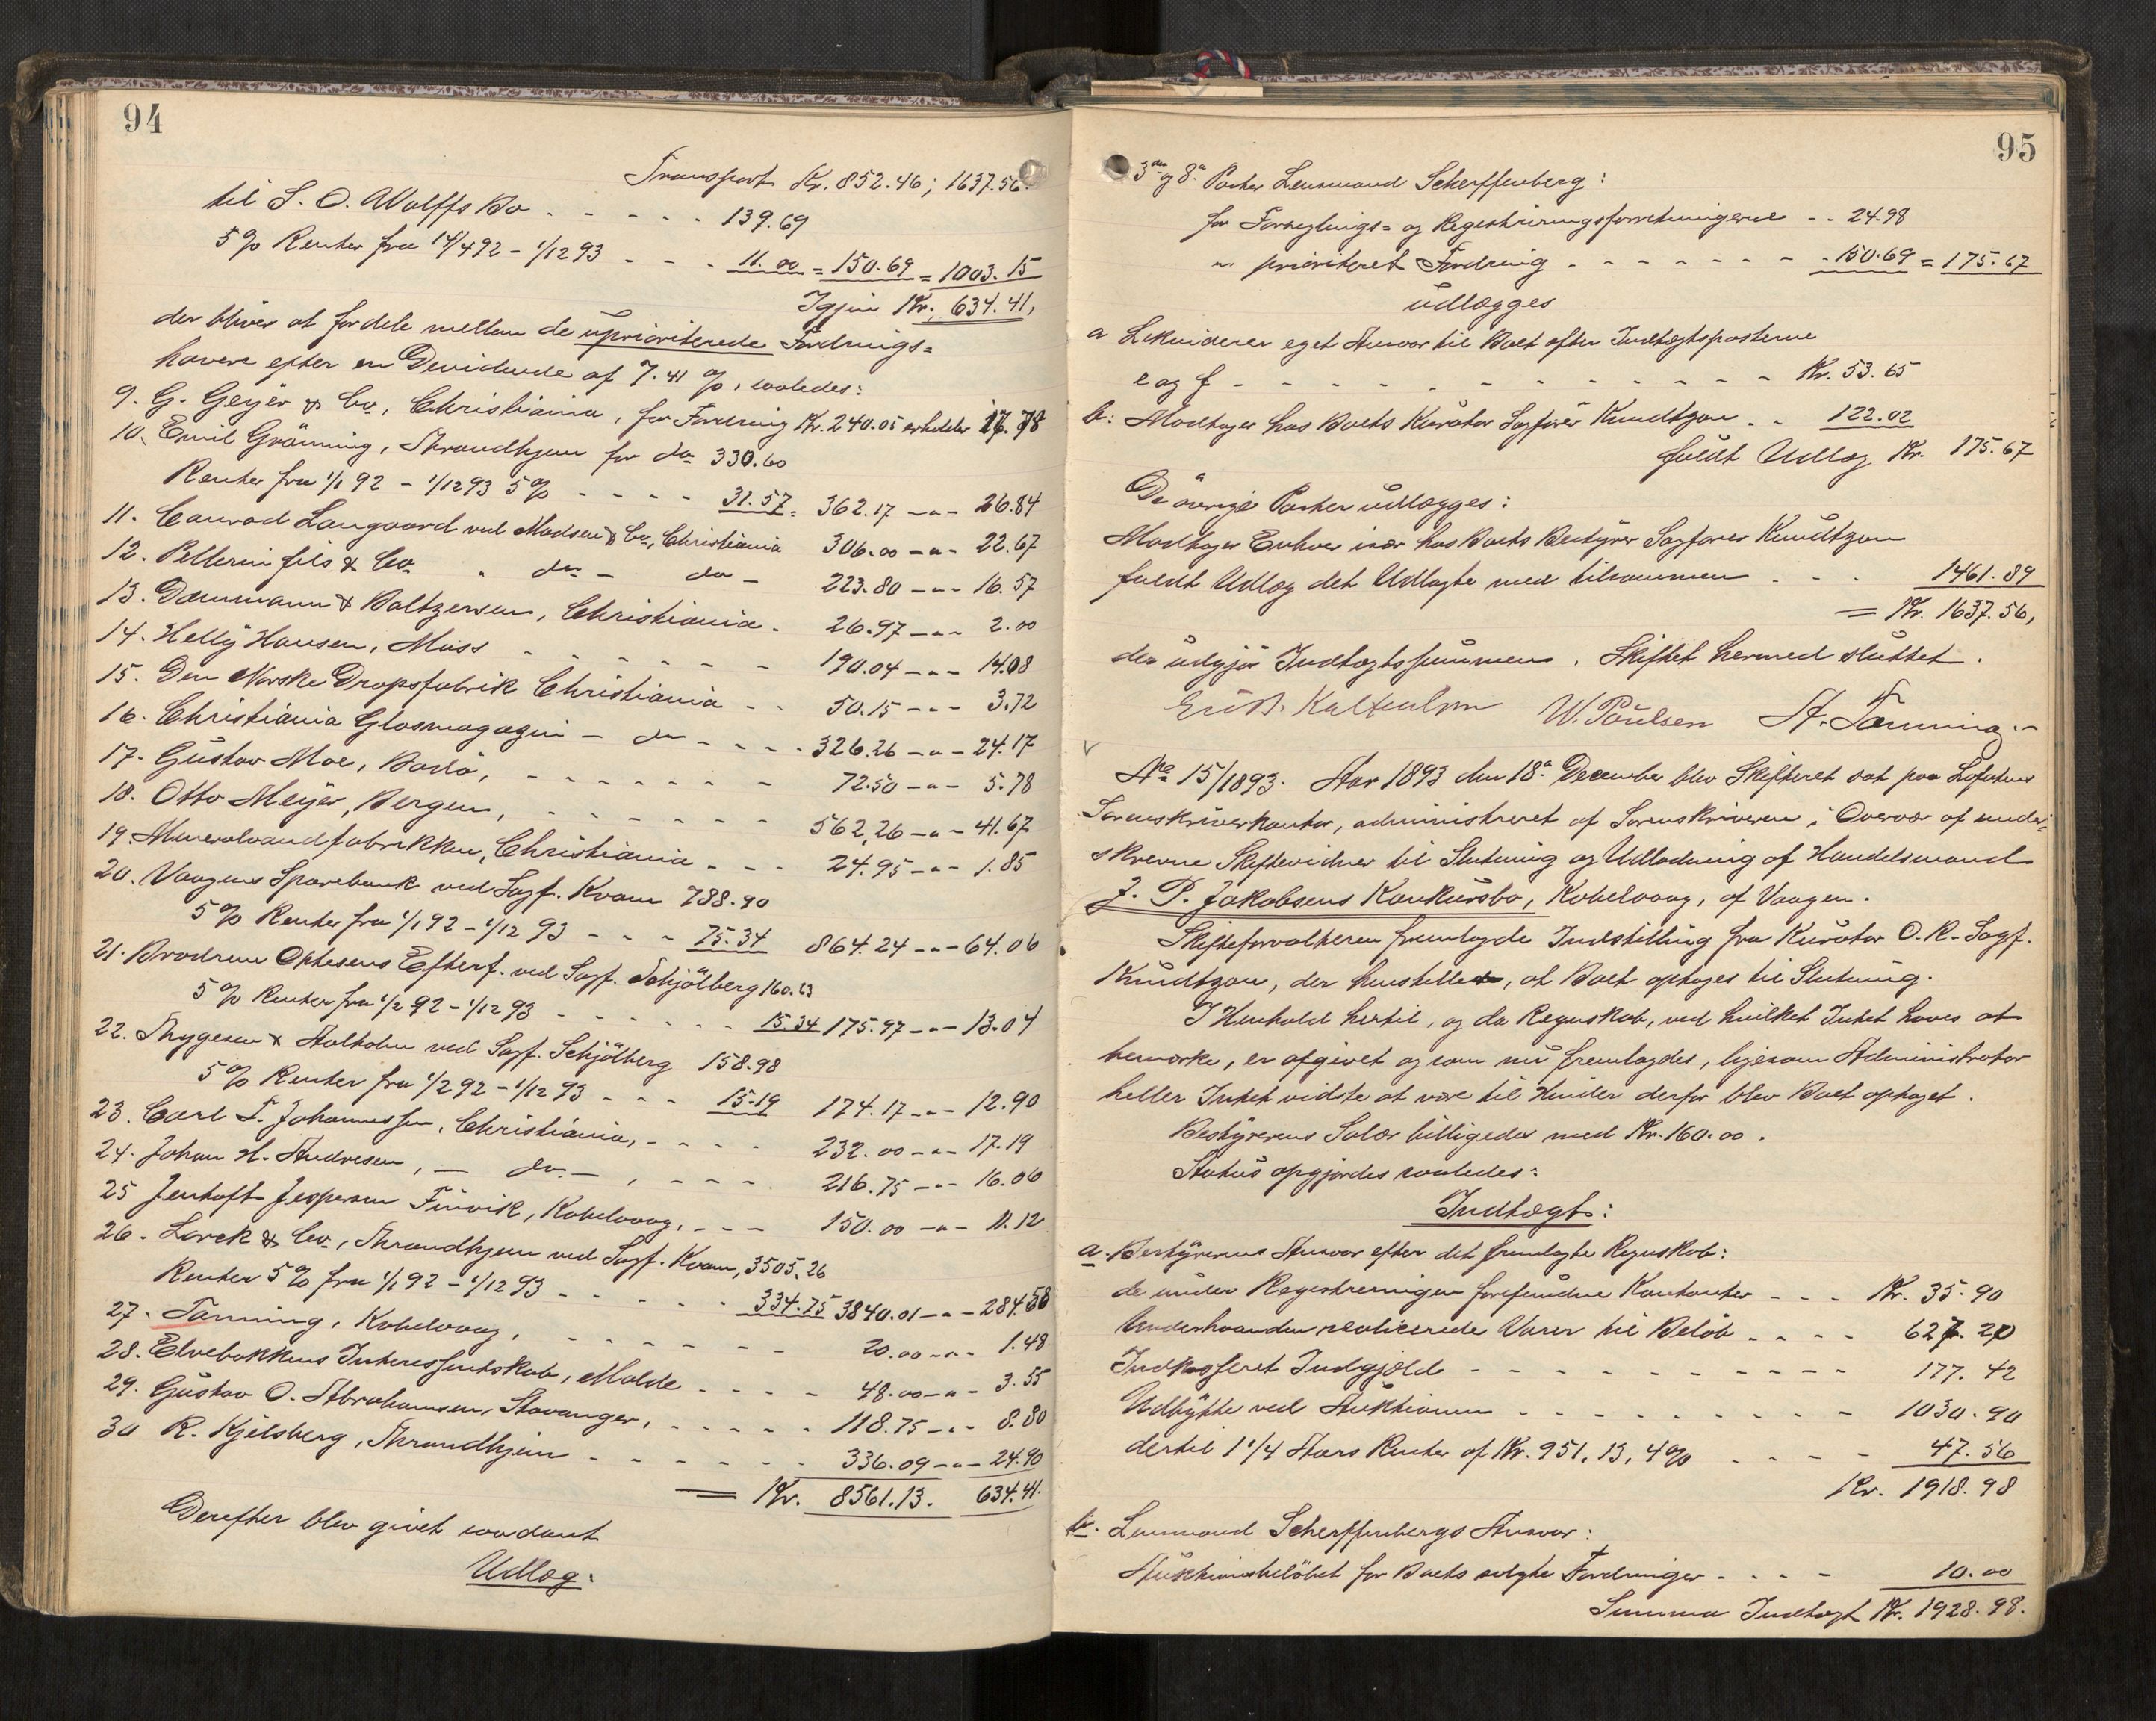 94
Transport Kr. 852.46; 1637.56
til S. O. Wolffs Bo - - - - - 139.69
5 % Renter fra 14/4 92 - 1/12 93 - - - 11.00 = 150.69 = 1003.15
Igjen Kr. 634.41,
der bliver at fordele mellem de uprioriterede Fordrings=
havere efter en Devidende af 7.41 %, saaledes:
9. G. Geijer & Co, Christiania, for Fordring Kr. 240.05 erholder 17.78
10. Emil Grönning, Throndhjem for do 330.60
Renter fra 1/1 92 - 1/12 93 5 % - - - - 31.57 = 362.17 - " - 26.84
11. Conrad Langaard ved Madsen & Co, Christiania 306.00 - " - 22.67
12. Pellerin fils & Co " do - do - 223.80 - " - 16.57
13. Dammann & Baltzersen, Christiania - 26.97 - " - 2.00
14. Helly Hansen, Moss - - - - - - 190.04 - " - 14.08
15. Den Norske Dropsfabrik Christiania - - 50.15 - " - 3.72
16. Christiania Glasmagazin - do - - - - 326.26 - " - 24.17
17. Gustav Moe, Bodö, - - - - - - - 72.50 - " - 5.78
18. Otto Meyer, Bergen, - - - - - - - 562,26 - " - 41.67
19. Mineralvandfabrikken, Christiania - - - 24.95 - " - 1.85
20. Vaagens Sparebank ved Sagf. Kvam 788.90
5 % Renter fra 1/1 92 - 1/12 93 - - - 75.34 864.24 - " - 64.06
21. Brødrene Ottesens Efterf. ved Sagf. Schjölberg 160.63
5 % Renter fra 1/2 92 - 1/12 93 - - - - - - 15.34 175.97 - " - 13.04
22. Thygesen & Stolholm ved Sagf. Schjölberg 158.98
5 % Renter fra 1/2 92 - 1/12 93 - - - 15.19 174.17 - " - 12.90
23. Carl F. Johannessen, Christiania, - - - - 232.00 - " - 17.19
24. Johan H. Andresen, - do - , - - - - 216.75 - " - 16.06
25 Jentoft Jespersen Finvik, Kabelvaag, - - - 150.00 - " - 11.12
26. Lorck & Co, Throndhjem ved Sagf. Kvam, 3505.26
Renter 5 % fra 1/1 92 - 1/12 93 - - - - - 334.75 3840.01 - " - 284.58
27. Tanning, Kabelvaag, - - - - - - - 20.00 - " - 1.48
28. Elvebakkens Interessentskab, Molde - - - - 48.00 - " - 3.55
29. Gustav O. Abrahamsen, Stavanger, - - - - - 118.75 - " - 8.80
30 R. Kjelsberg, Throndhjem - - - - - - 336.09 - " - 24.90
= Kr. 8561.13. 634.41.
Derefter blev givet saadant
Udlæg:
95
3die og 8de Poster Lensmand Scherffenberg:
for Forseglings= og Registreringsforretningerne - - 24.98
" prioriteret Fordring - - - - - - - 150.69 = 175.67
udlægges
a Lekviderer eget Ansvar til Boet efter Indtægtsposterne
e og f - - - - - - - - - - - - Kr. 53.65
b: Modtager hos Boets Kurator Sagfører Knudtzon - - 122.02
fuldt Udlæg Kr. 175.67
De övrige Poster udlægges:
Modtager Enhver især hos Boets Bestyrer Sagfører Knudtzon
fuldt Udlæg det Udlagte med tilsammen - - - 1461.89
= Kr. 1637.56,
der udgjør Indtægtssummen. Skiftet hermed sluttet.
W. Poulsen A. Tanning.-
No 15/1893. Aar 1893 den 18de December blev Skifteret sat paa Lofotens
Sorenskriverkontor, administreret af Sorenskriveren, i Overvær af under=
skrevne Skiftevidner til Slutning og Udlodning af Handelsmand
J. P. Jakobsens Konkursbo, Kabelvaag, af Vaagen.
Skifteforvalteren fremlagde Indstilling fra Kurator O. R. Sagf.
Knudtzon, der henstiller, at Boet optages til Slutning.
I Henhold hertil, og da Regnskab, ved hvilket Intet haves at
bemærke, er afgivet og som nu fremlagdes, ligesom Administrator
heller Intet vidste at være til Hinder derfor blev Boet optaget.
Bestyrerens Salær billigedes med Kr. 160.00.
Status opgjordes saaledes:
Indtægt:
a. Bestyrerens Ansvar efter det fremlagte Regnskab:
de under Registreringen forefundne Kontanter - - - Kr. 35.90
Underhaanden realiserede Varer til Beløb - - - - 627.20
Indkasseret Indgjæld - - - - - - - - - - 177.42
Udbytte ved Auktionen - - - - - - - - - 1030.90
dertil 1 1/4 Aars Renter af Kr. 951.13, 4 % - - - - 47.56
Kr. 1918.98
b. Lensmand Scherffenbergs Ansvar:
Auktionsbeløbet for Boets solgte Fordringer - - - - 10.00
Summa Indtægt Kr. 1928.98.